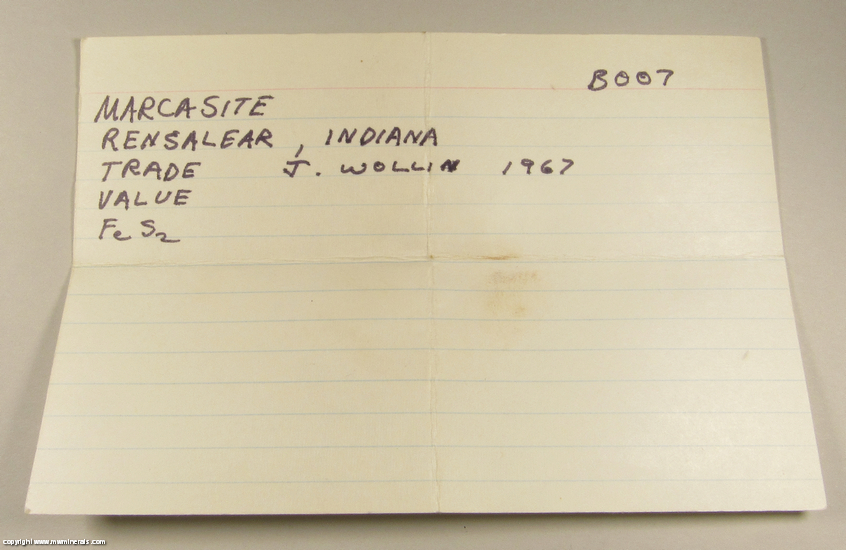 B007
MARCASITE
RENSALEAR, INDIANA
TRADE J. WOLLIN 1967
VALUE
FeS2
copyright www.mwminerals.com